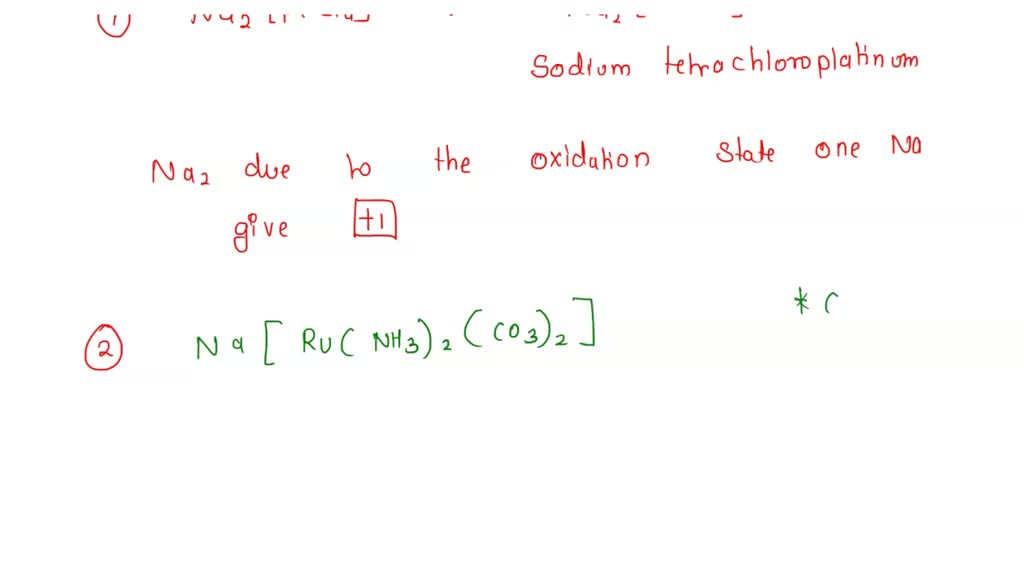 1
Sodium tetrachloroplatinum
Na2 due to the oxidation state one Na
give +1
2 Na [ Ru( NH3)2 (CO3)2 ] * (